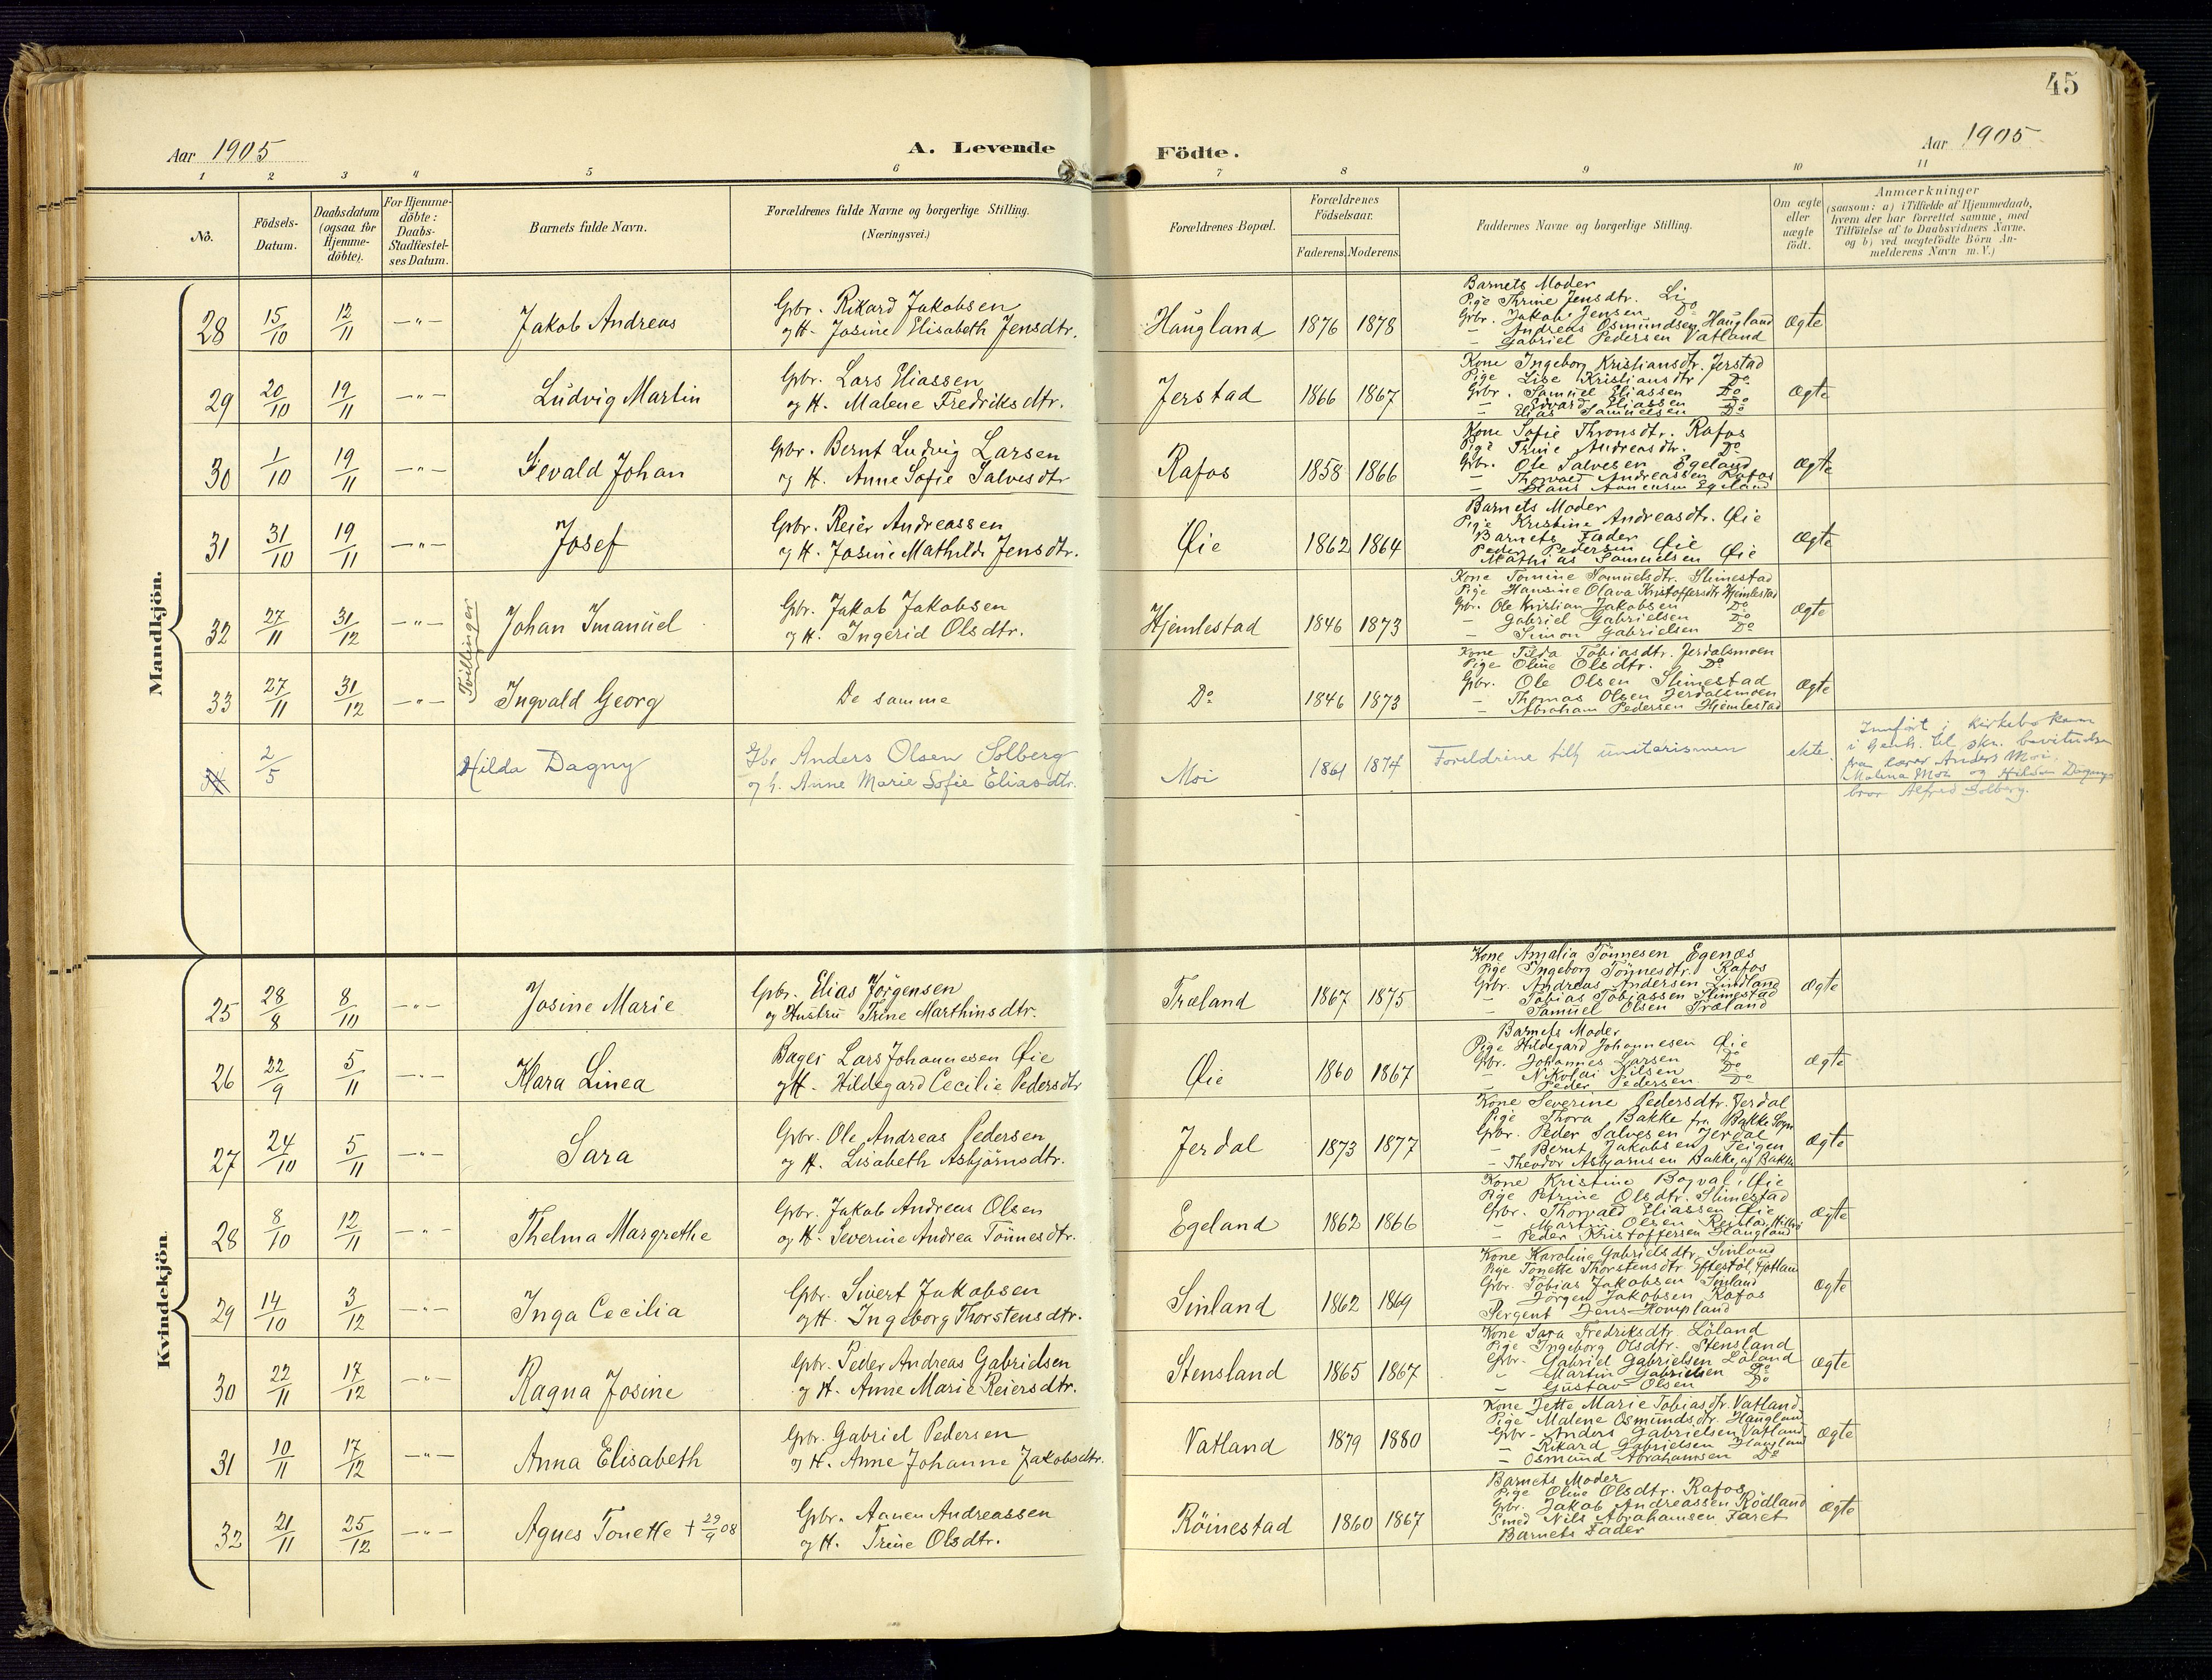 45
Aar 1905
A. Levende Födte.
Aar 1905
1 2 3 4 5 6 7 8 9 10 11
No.
Födsels-Datum.
Daabsdatum (ogsaa for Hjemme-döbte).
For Hjemme-döbte: Daabs-Stadfæstel-ses Datum.
Barnets fulde Navn.
Forældrenes fulde Navne og borgerlige Stilling.
(Næringsvei.)
Forældrenes Bopæl.
Forældrenes Födselsaar.
Faderens. Moderens.
Faddernes Navne og borgerlige Stilling.
Om ægte eller uægte født.
Anmærkninger
(saasom: a) i Tilfælde af Hjemmedaab,
hvem der har forrettet samme, med
Tilföielse af to Daabsvidners Navne.
og b) ved uægtefödte Börn An-
melderens Navn m. V.)
Mandkjön.
28 15/10 12/11 —"— Jakob Andreas
Gbr. Rikard Jakobsen
og H. Josine Elisabeth Jensdtr.
Haugland 1876 1878
Barnets Moder
Pige Thrine Jensdtr. Li
Gbr. Jakob Jensen Do
— Andreas Osmundsen Haugland
— Gabriel Pedersen Vatland
Ægte
29 20/10 19/11 —"— Ludvig Martin
Gbr. Lars Eliassen
og H. Malene Fredriksdtr.
Jerstad 1866 1867
Kone Ingeborg Kristiansdtr. Jerstad
Pige Lise Kristiansdtr Do
Gbr. Samuel Eliassen Do
— Edvard Eliassen Do
— Elias Samuelsen Do
Ægte
30 1/10 19/11 —"— Sevald Johan
Gbr. Bernt Ludvig Larsen
og H. Anne Sofie Salvesdtr
Rafos 1858 1866
Kone Sofie Thronsdtr. Rafos
Pige Trine Andreasdtr. Do
Gbr. Ole Salvesen Egeland
— Thorvald Andreassen Rafos
— Hans Aanensen Egeland
Ægte
31 31/10 19/11 —"— Josef
Gbr. Reier Andreassen
og H. Josine Mathilde Jensdtr.
Øie 1862 1864
Barnets Moder
Pige Kristine Andreasdtr. Øie
Barnets Fader
Peder Pedersen Øie
Mathias Samuelsen Øie
Ægte
Tvillinger
32 27/11 31/12 —"— Johan Imanuel
Gbr. Jakob Jakobsen
og H. Ingerid Olsdtr.
Hjemlestad 1846 1873
Kone Tomine Samuelsdtr. Slimestad
Pige Hansine Olava Kristoffersdtr Hjemlestad
Gbr. Ole Kristian Jakobsen Do
— Gabriel Gabrielsen Do
— Simon Gabrielsen Do
Ægte
33 27/11 31/12 —"— Ingvald Georg
De samme
Do 1846 1873
Kone Tilda Tobiasdtr. Jerdalsmoen
Pige Oline Olsdtr. Do
Gbr. Ole Olsen Slimestad
— Thomas Olsen Jerdalsmoen
— Abraham Pedersen Hjemlestad
Ægte
2/5 Hilda Dagny
Gbr Anders Olsen Solberg
og h. Anne Marie Sofie Eliasdtr.
Moi 1861 1874
Foreldrine tilh unitarismen
ekte
Innført i kirkeboken
i henh. til skr. bevitnelse
fra lærer Anders Moi,
Malena Moi og Hilda Dagnys
bror Alfred Solberg.
Kvindekjön.
25 28/8 8/10 —"— Josine Marie
Gbr. Elias Jörgensen
og Hustru Trine Marthinsdtr.
Træland 1867 1875
Kone Amalia Tönnesen Egenæs
Pige Ingeborg Tönnesdtr. Rafos
Gbr. Andreas Andersen Lindland
— Tobias Tobiassen Slimestad
— Samuel Olsen Træland
Ægte
26 22/9 5/11 —"— Klara Linea
Bager Lars Johannesen Øie
og H. Hildegard Cecilie Pedersdtr
Øie 1860 1867
Barnets Moder
Pige Hildegard Johannesen Øie
Gbr. Johannes Larsen Do
— Nikolai Nilsen Do
— Peder Pedersen Do
Ægte
27 24/10 5/11 —"— Sara
Gbr. Ole Andreas Pedersen
og H. Lisabeth Asbjörnsdtr.
Jerdal 1873 1877
Kone Severine Pedersdtr. Jerdal
Pige Thora Bakke fra Bakke Sogn
Gbr. Peder Salvesen Jerdal
— Bernt Jakobsen Teigen
— Theodor Asbjørnsen Bakke, af Bakke
Ægte
28 8/10 12/11 —"— Thelma Margrethe
Gbr. Jakob Andreas Olsen
og H. Severine Andrea Tönnesdtr.
Egeland 1862 1866
Kone Kristine Bogval, Øie
Pige Petrine Olsdtr. Slimestad
Gbr. Thorvald Eliassen Øie
— Martin Olsen
— Peder Kristoffersen Haugland
Ægte
29 14/10 3/12 —"— Inga Cecilia
Gbr. Sivert Jakobsen
og H. Ingeborg Thorstensdtr.
Sinland 1862 1869
Kone Karoline Gabrielsdtr. Sinland
Pige Tonette Thorstensdtr. Eftestöl, Fjotland
Gbr. Tobias Jakobsen Sinland
— Jörgen Jakobsen Rafos
Sergent Jens Hompland
Ægte
30 22/11 17/12 —"— Ragna Josine
Gbr. Peder Andreas Gabrielsen
og H. Anne Marie Reiersdtr.
Stensland 1865 1867
Kone Sara Fredriksdtr. Löland
Pige Ingeborg Olsdtr. Stensland
Gbr. Gabriel Gabrielsen Löland
— Martin Gabrielsen Do
— Gustav Olsen Do
Ægte
31 10/11 17/12 —"— Anna Elisabeth
Gbr. Gabriel Pedersen
og H. Anne Johanne Jakobsdtr.
Vatland 1879 1880
Kone Jette Marie Tobiasdtr. Vatland
Pige Malene Osmundsdtr. Haugland
Gbr. Anders Gabrielsen Vatland
— Rikard Gabrielsen Haugland
— Osmund Abrahamsen Do
Ægte
32 21/11 25/12 —"— Agnes Tonette + 29/9 08
Gbr. Aanen Andreassen
og H. Trine Olsdtr.
Röinestad 1860 1867
Barnets Moder
Pige Oline Olsdtr. Rafos
Gbr. Jakob Andreassen Rödland
Smed Nils Abrahamsen Faret
Barnets Fader
Ægte